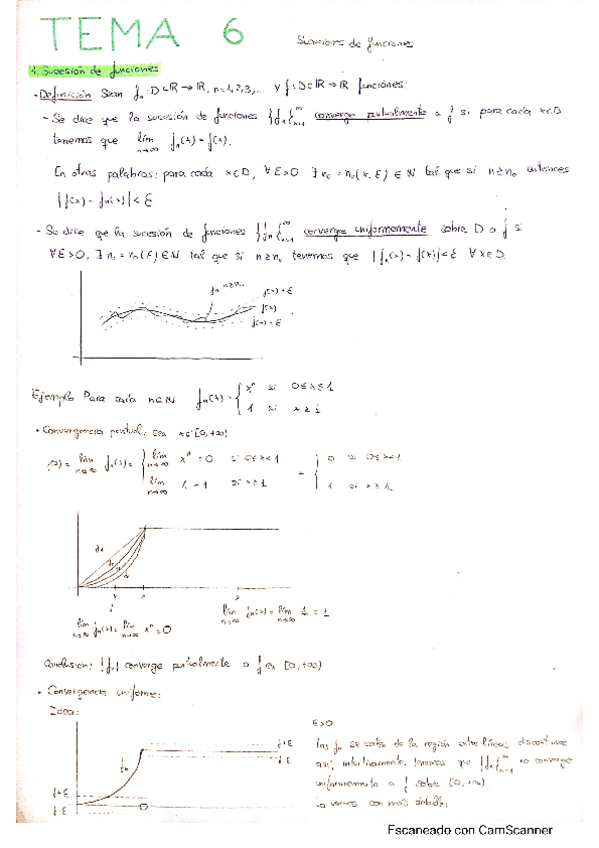 TEMA 6 Sucesiones de funciones
1. Sucesión de funciones
• Definición Sean fn: D⊂ℝ→ℝ, n=1,2,3,... y f: D⊂ℝ→ℝ funciones:
- Se dice que la sucesión de funciones {fn}∞n=1 converge puntualmente a f si para cada x∈D
tenemos que lím n→∞ fn(x) = f(x).
En otras palabras: para cada x∈D, ∀ε>0 ∃ n0 = n0(x,ε) ∈ ℕ tal que si n≥n0 entonces
|f(x) - fn(x)| < ε
- Se dice que la sucesión de funciones {fn}∞n=1 converge uniformemente sobre D a f si
∀ε>0, ∃ n0 = n0(ε) ∈ ℕ tal que si n≥n0 tenemos que |fn(x) - f(x)| < ε ∀x∈D.
fn n≥n0
f(x)+ε
f(x)
f(x)-ε
Ejemplo Para cada n∈ℕ fn(x) = { x^n si 0≤x≤1
1 si x≥1
• Convergencia puntual: sea x∈[0,+∞)
f(x) = lím n→∞ fn(x) = { lím n→∞ x^n = 0 si 0≤x<1 = { 0 si 0≤x<1
lím n→∞ 1 = 1 si x≥1 1 si x≥1
lím n→∞ fn(x) = lím n→∞ 1 = 1
lím n→∞ fn(x) = lím n→∞ x^n = 0
Conclusión: {fn} converge puntualmente a f en [0,+∞)
• Convergencia uniforme:
Idea: ε>0
f+ε
f-ε
fn
f+ε
f-ε
Las fn se salen de la región entre líneas discontinuas
así, intuitivamente, tenemos que {fn}∞n=1 no converge
uniformemente a f sobre [0,+∞)
Lo vemos con más detalle:
Escaneado con CamScanner